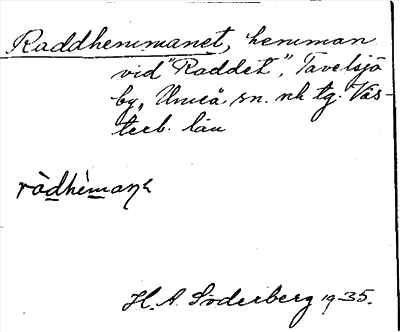 Raddhemmanet, hemman
vid "Raddet", Tavelsjö
by, Umeå sn. nh tg. Väs-
terb. län
ràdhèmanɦ
H. A. Söderberg 1935.